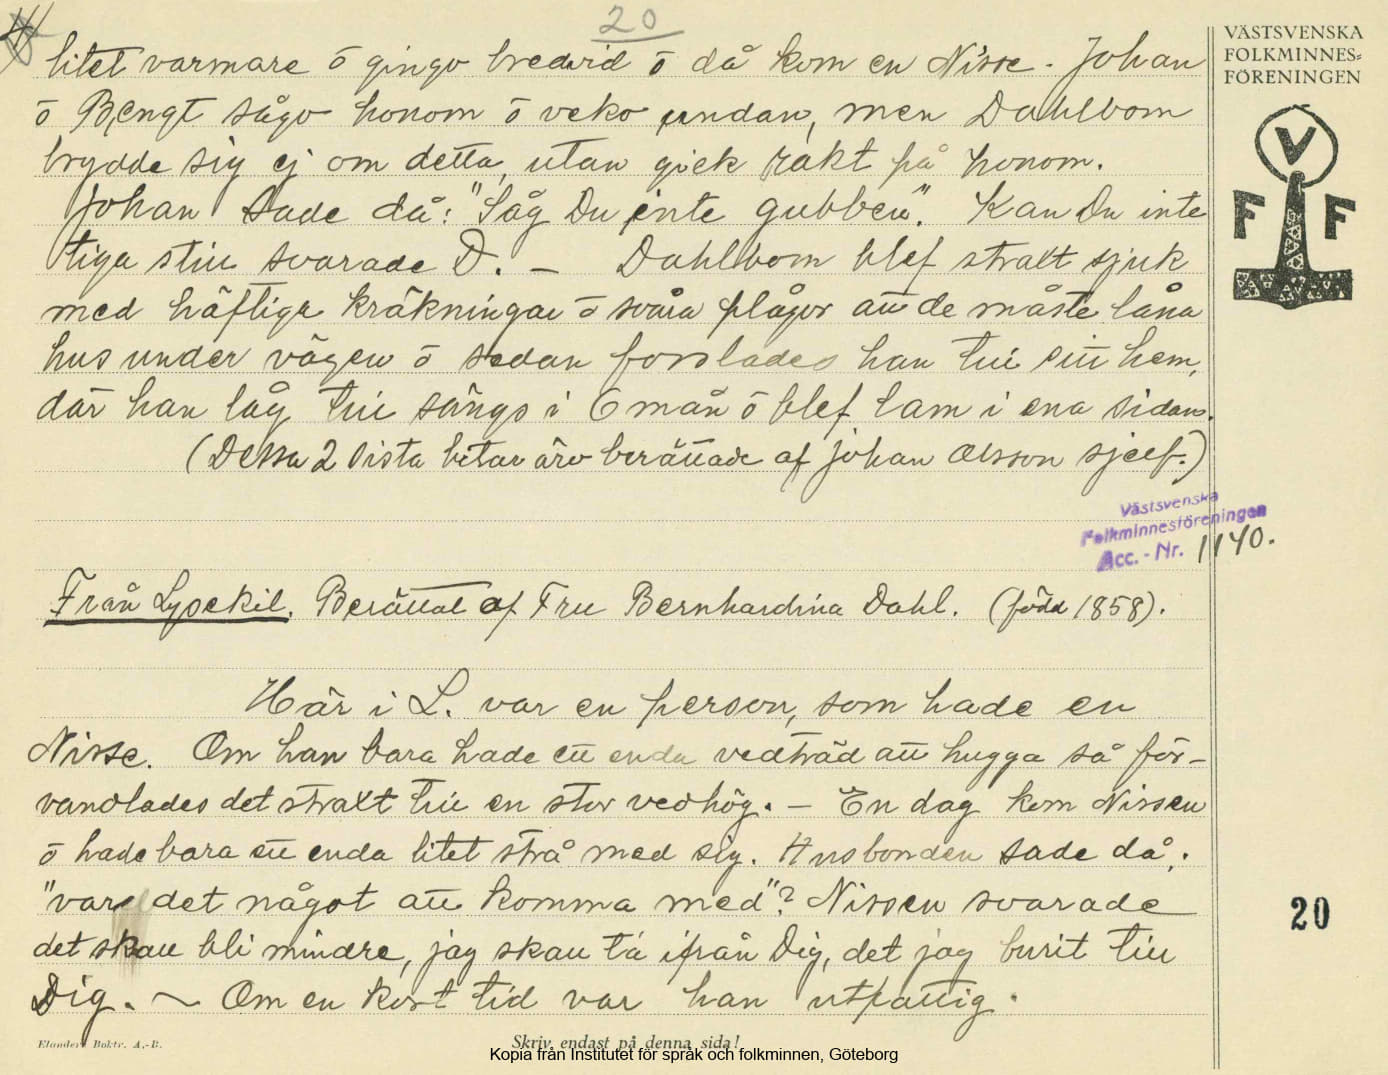 20
VÄSTSVENSKA
FOLKMINNES=
FÖRENINGEN
litet varmare ō gingo bredvid ō då kom en Nisse. Johan
ō Bengt sågo honom ō veko undan, men Dahlbom
brydde sig ej om detta, utan gick rakt på honom.
Johan sade då: "Såg Du inte gubben". Kan Du inte
tiga still svarade D. — Dahlbom blef straxt sjuk
med häftiga kräkningar ō svåra plågor att de måste låna
hus under vägen ō sedan forslades han till sitt hem,
där han låg till sängs i 6 mån ō blef lam i ena sidan.
(Dessa 2 sista bitar äro berättade af Johan Olsson sjelf.)
V
F F
Västsvenska
Folkminnesföreningen
Acc. - Nr. 1140.
Från Lysekil. Berättat af Fru Bernhardina Dahl. (född 1858).
Här i L. var en person, som hade en
Nisse. Om han bara hade ett enda vedträd att hugga så för-
vandlades det straxt till en stor vedhög. — En dag kom Nissen
ō hade bara ett enda litet strå med sig. Husbonden sade då:
"var det något att komma med"? Nissen svarade
det skall bli mindre, jag skall ta ifrån Dig, det jag burit till
Dig. ~ Om en kort tid var han utfattig.
20
Elanders Boktr. A.-B.
Skriv endast på denna sida!
Kopia från Institutet för språk och folkminnen, Göteborg